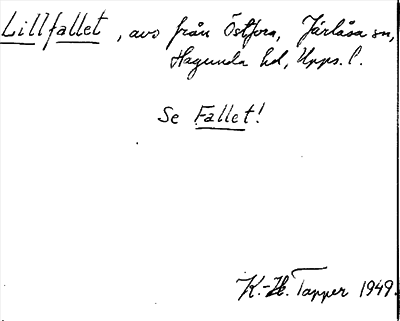 Lillfallet, avs från Östfora, Järlåsa sn,
Hagunda hd, Upps. l.
Se Fallet!
K.-H. Tapper 1949.